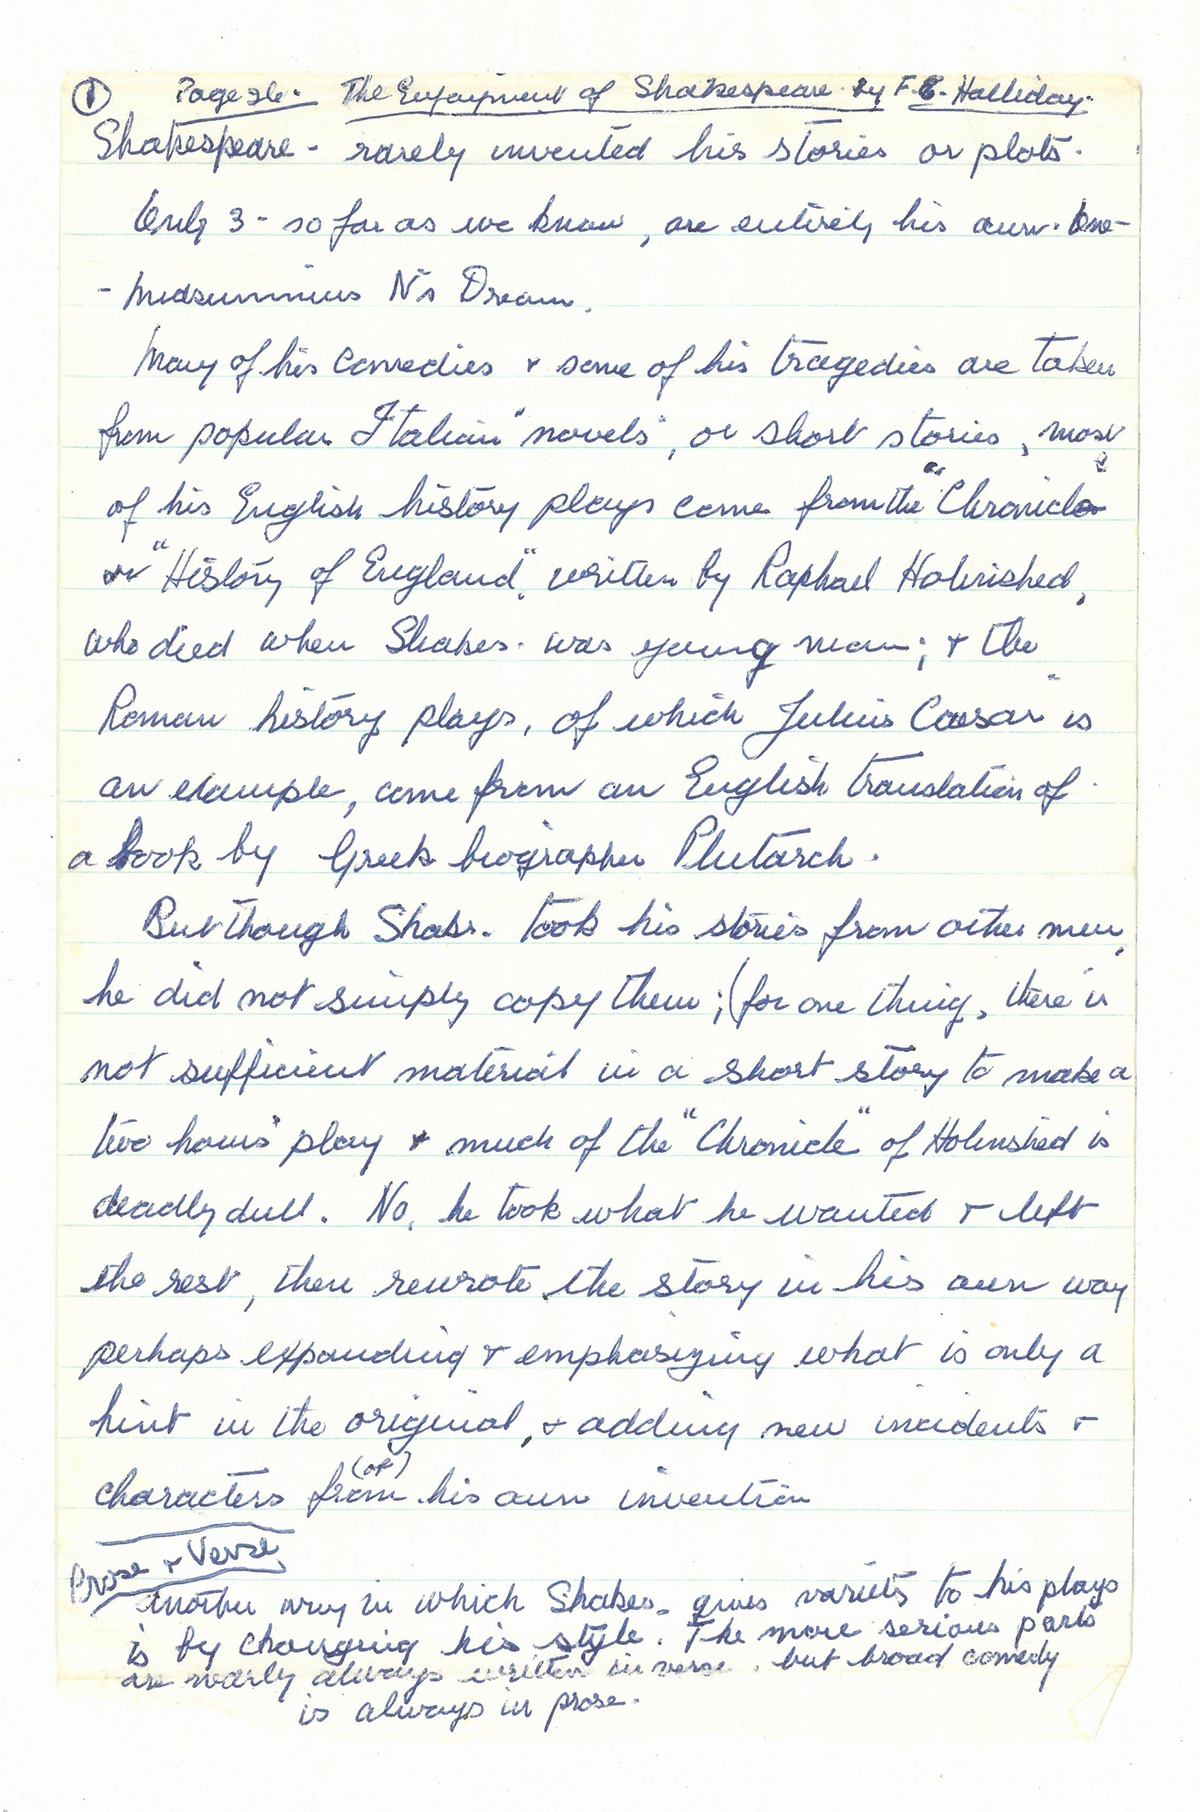 ① Page 26. The Enjoyment of Shakespeare by F.E. Halliday.
Shakespeare - rarely invented his stories or plots.
Only 3 - so far as we know, are entirely his own. One -
- Midsummers N's Dream.
Many of his comedies & some of his tragedies are taken
from popular Italian "novels", or short stories, most
of his English history plays come from the "Chronicle"
or "History of England", written by Raphael Holinshed,
who died when Shakes. was young man; & the
Roman history plays, of which Julius Caesar" is
an example, come from an English translation of
a book by Greek biographer Plutarch.
But though Shaks. took his stories from other men,
he did not simply copy them; (for one thing, there is
not sufficient material in a short story to make a
two hours' play & much of the "Chronicle" of Holinshed is
deadly dull. No, he took what he wanted & left
the rest, then rewrote the story in his own way
perhaps expanding & emphasizing what is only a
hint in the original, & adding new incidents &
characters from (of) his own invention
Prose & Verse
Another way in which Shakes. gives variety to his plays
is by changing his style. The more serious parts
are nearly always written in verse, but broad comedy
is always in prose.